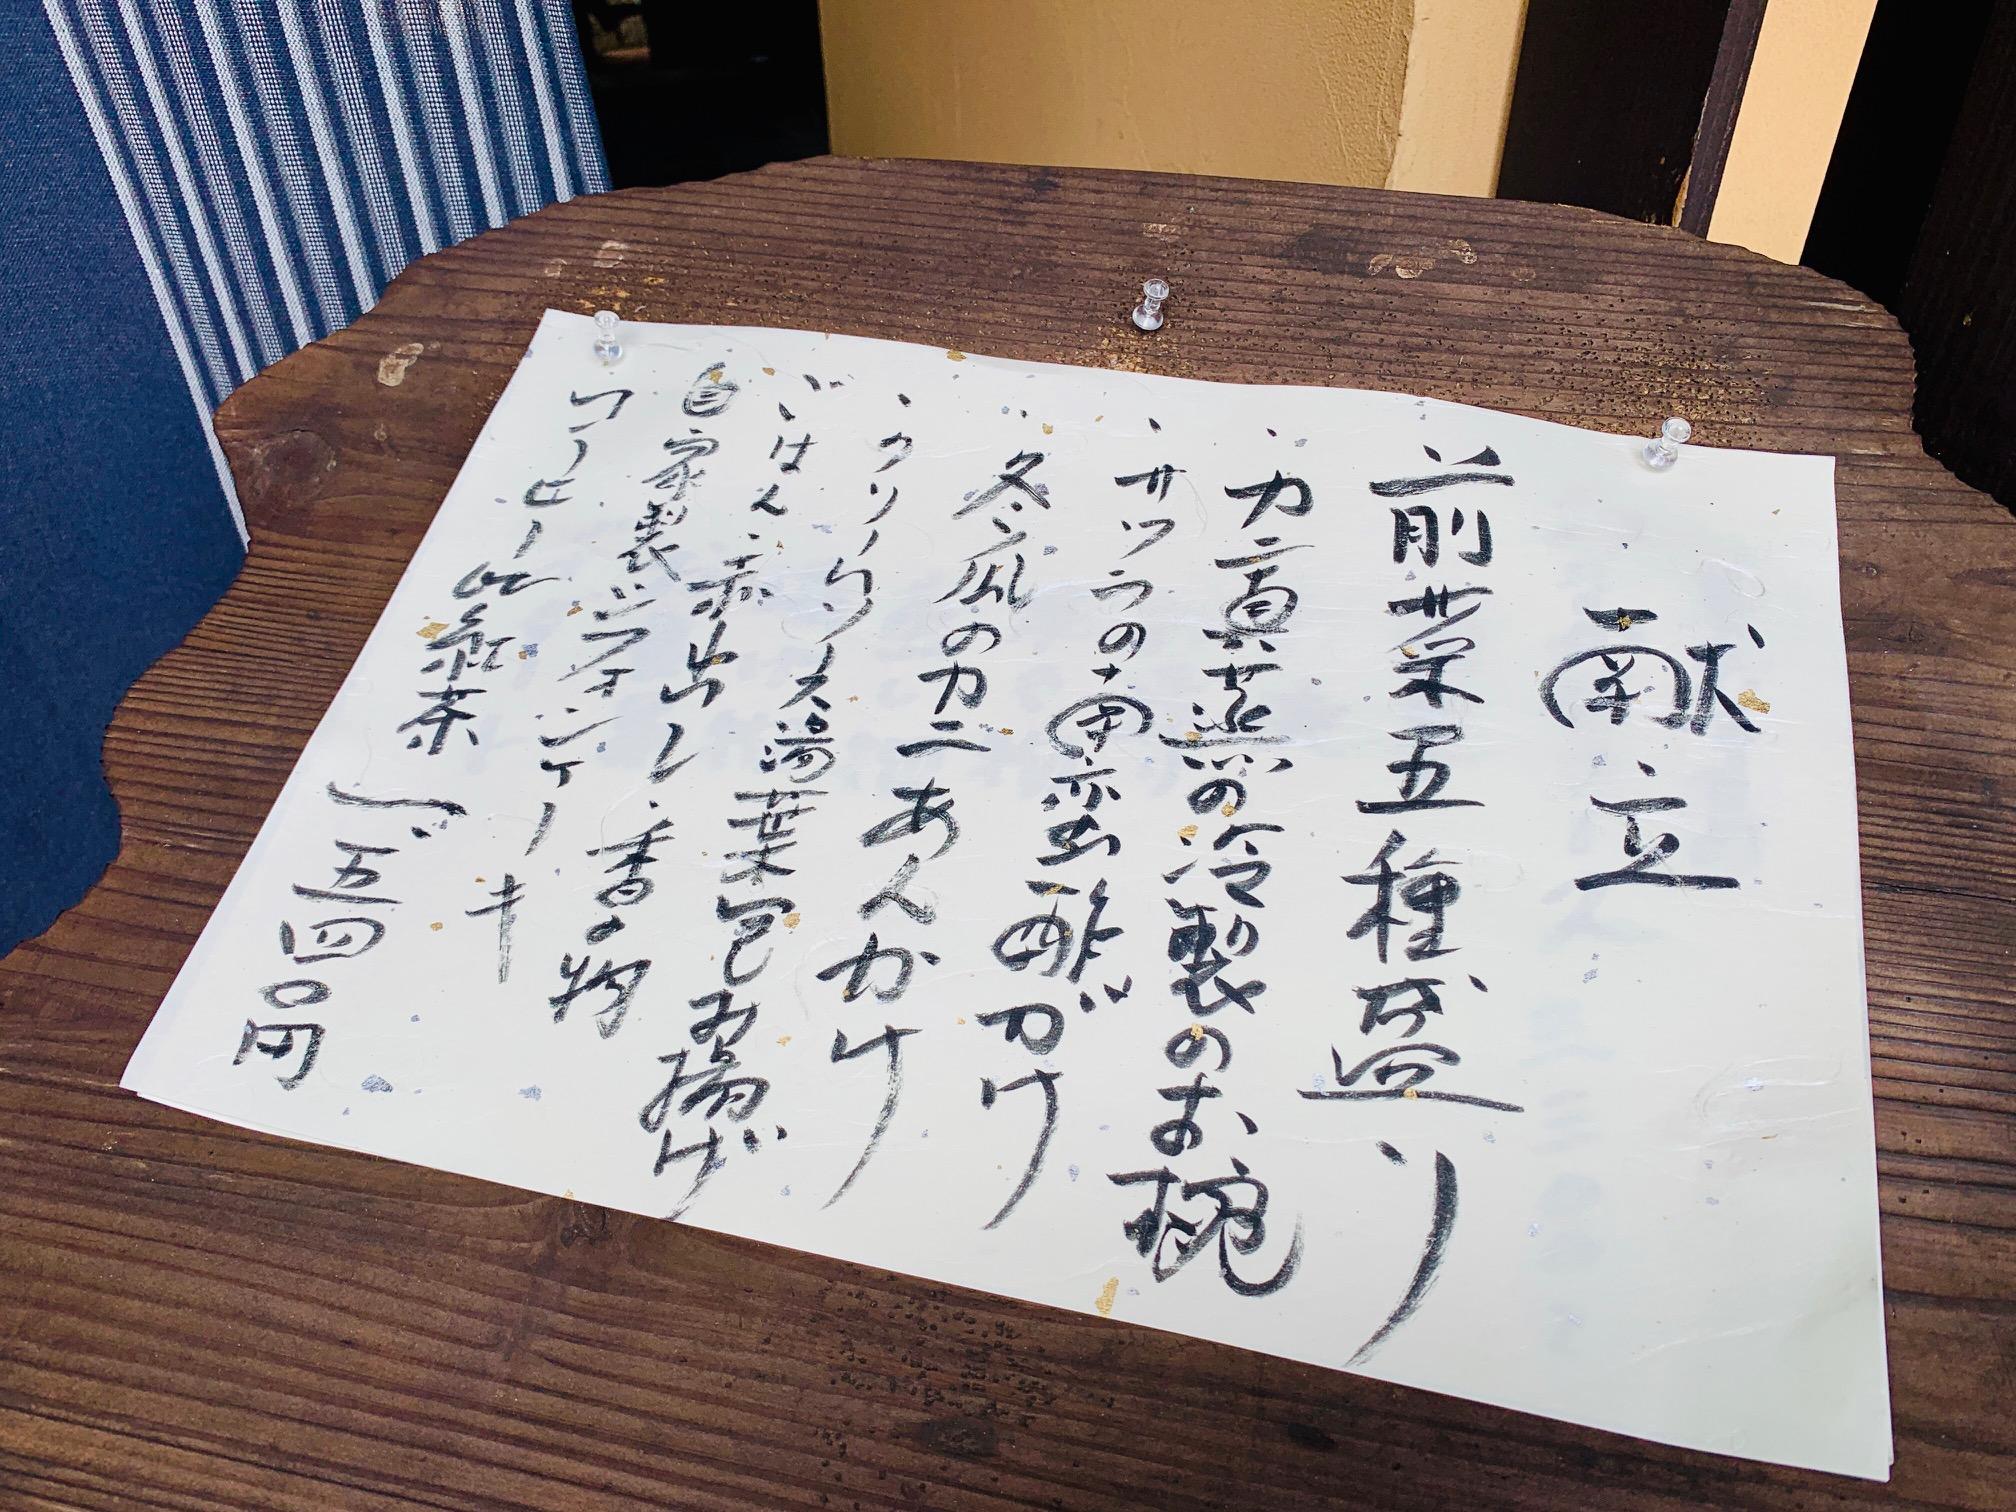 献立
前菜五種盛り
・カニ真蒸の冷製のお椀
・サワラの南蛮酢がけ
・冬瓜のカニあんかけ
・クリームチーズ湯葉包み揚げ
ごはん・赤出し・香の物
自家製シフォンケーキ
コーヒー or 紅茶
一、五四〇円